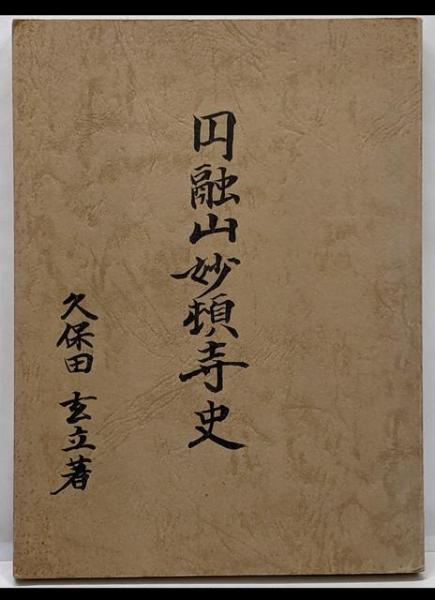 円融山妙頓寺史
久保田 玄立著